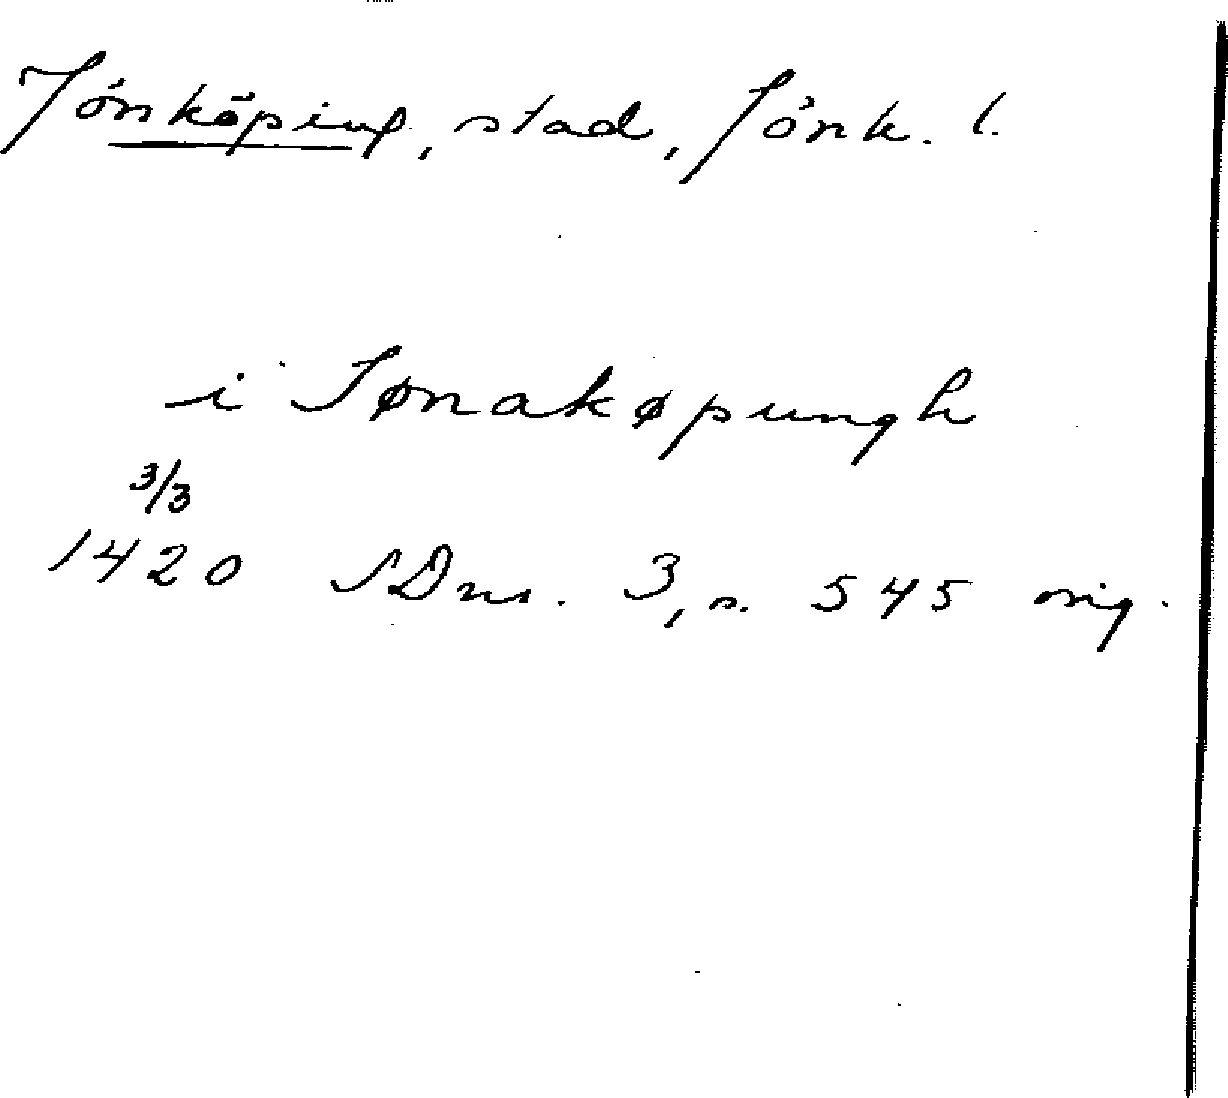 Jönköping, stad, Jönk. l.
i Jønakøpungh
3/3
1420 SDns. 3, s. 545 orig.